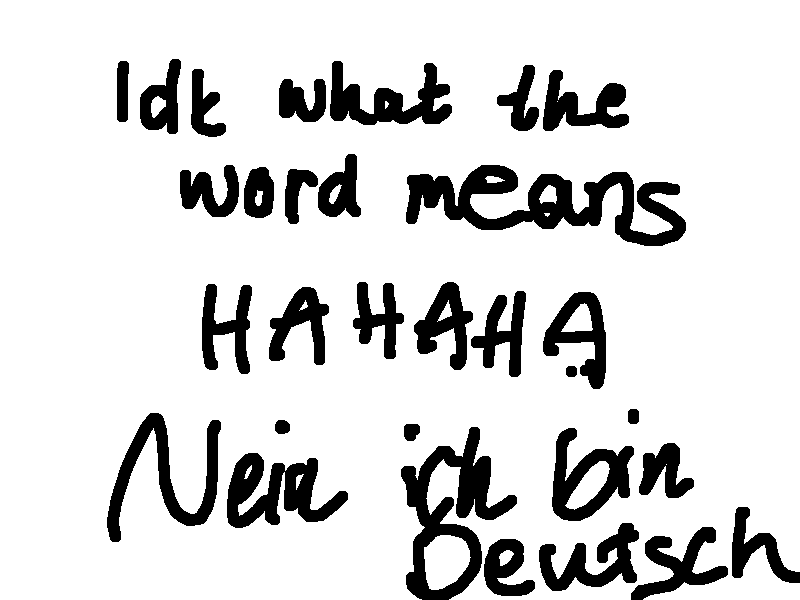 Idk what the
word means
HAHAHA
Nein ich bin
Deutsch